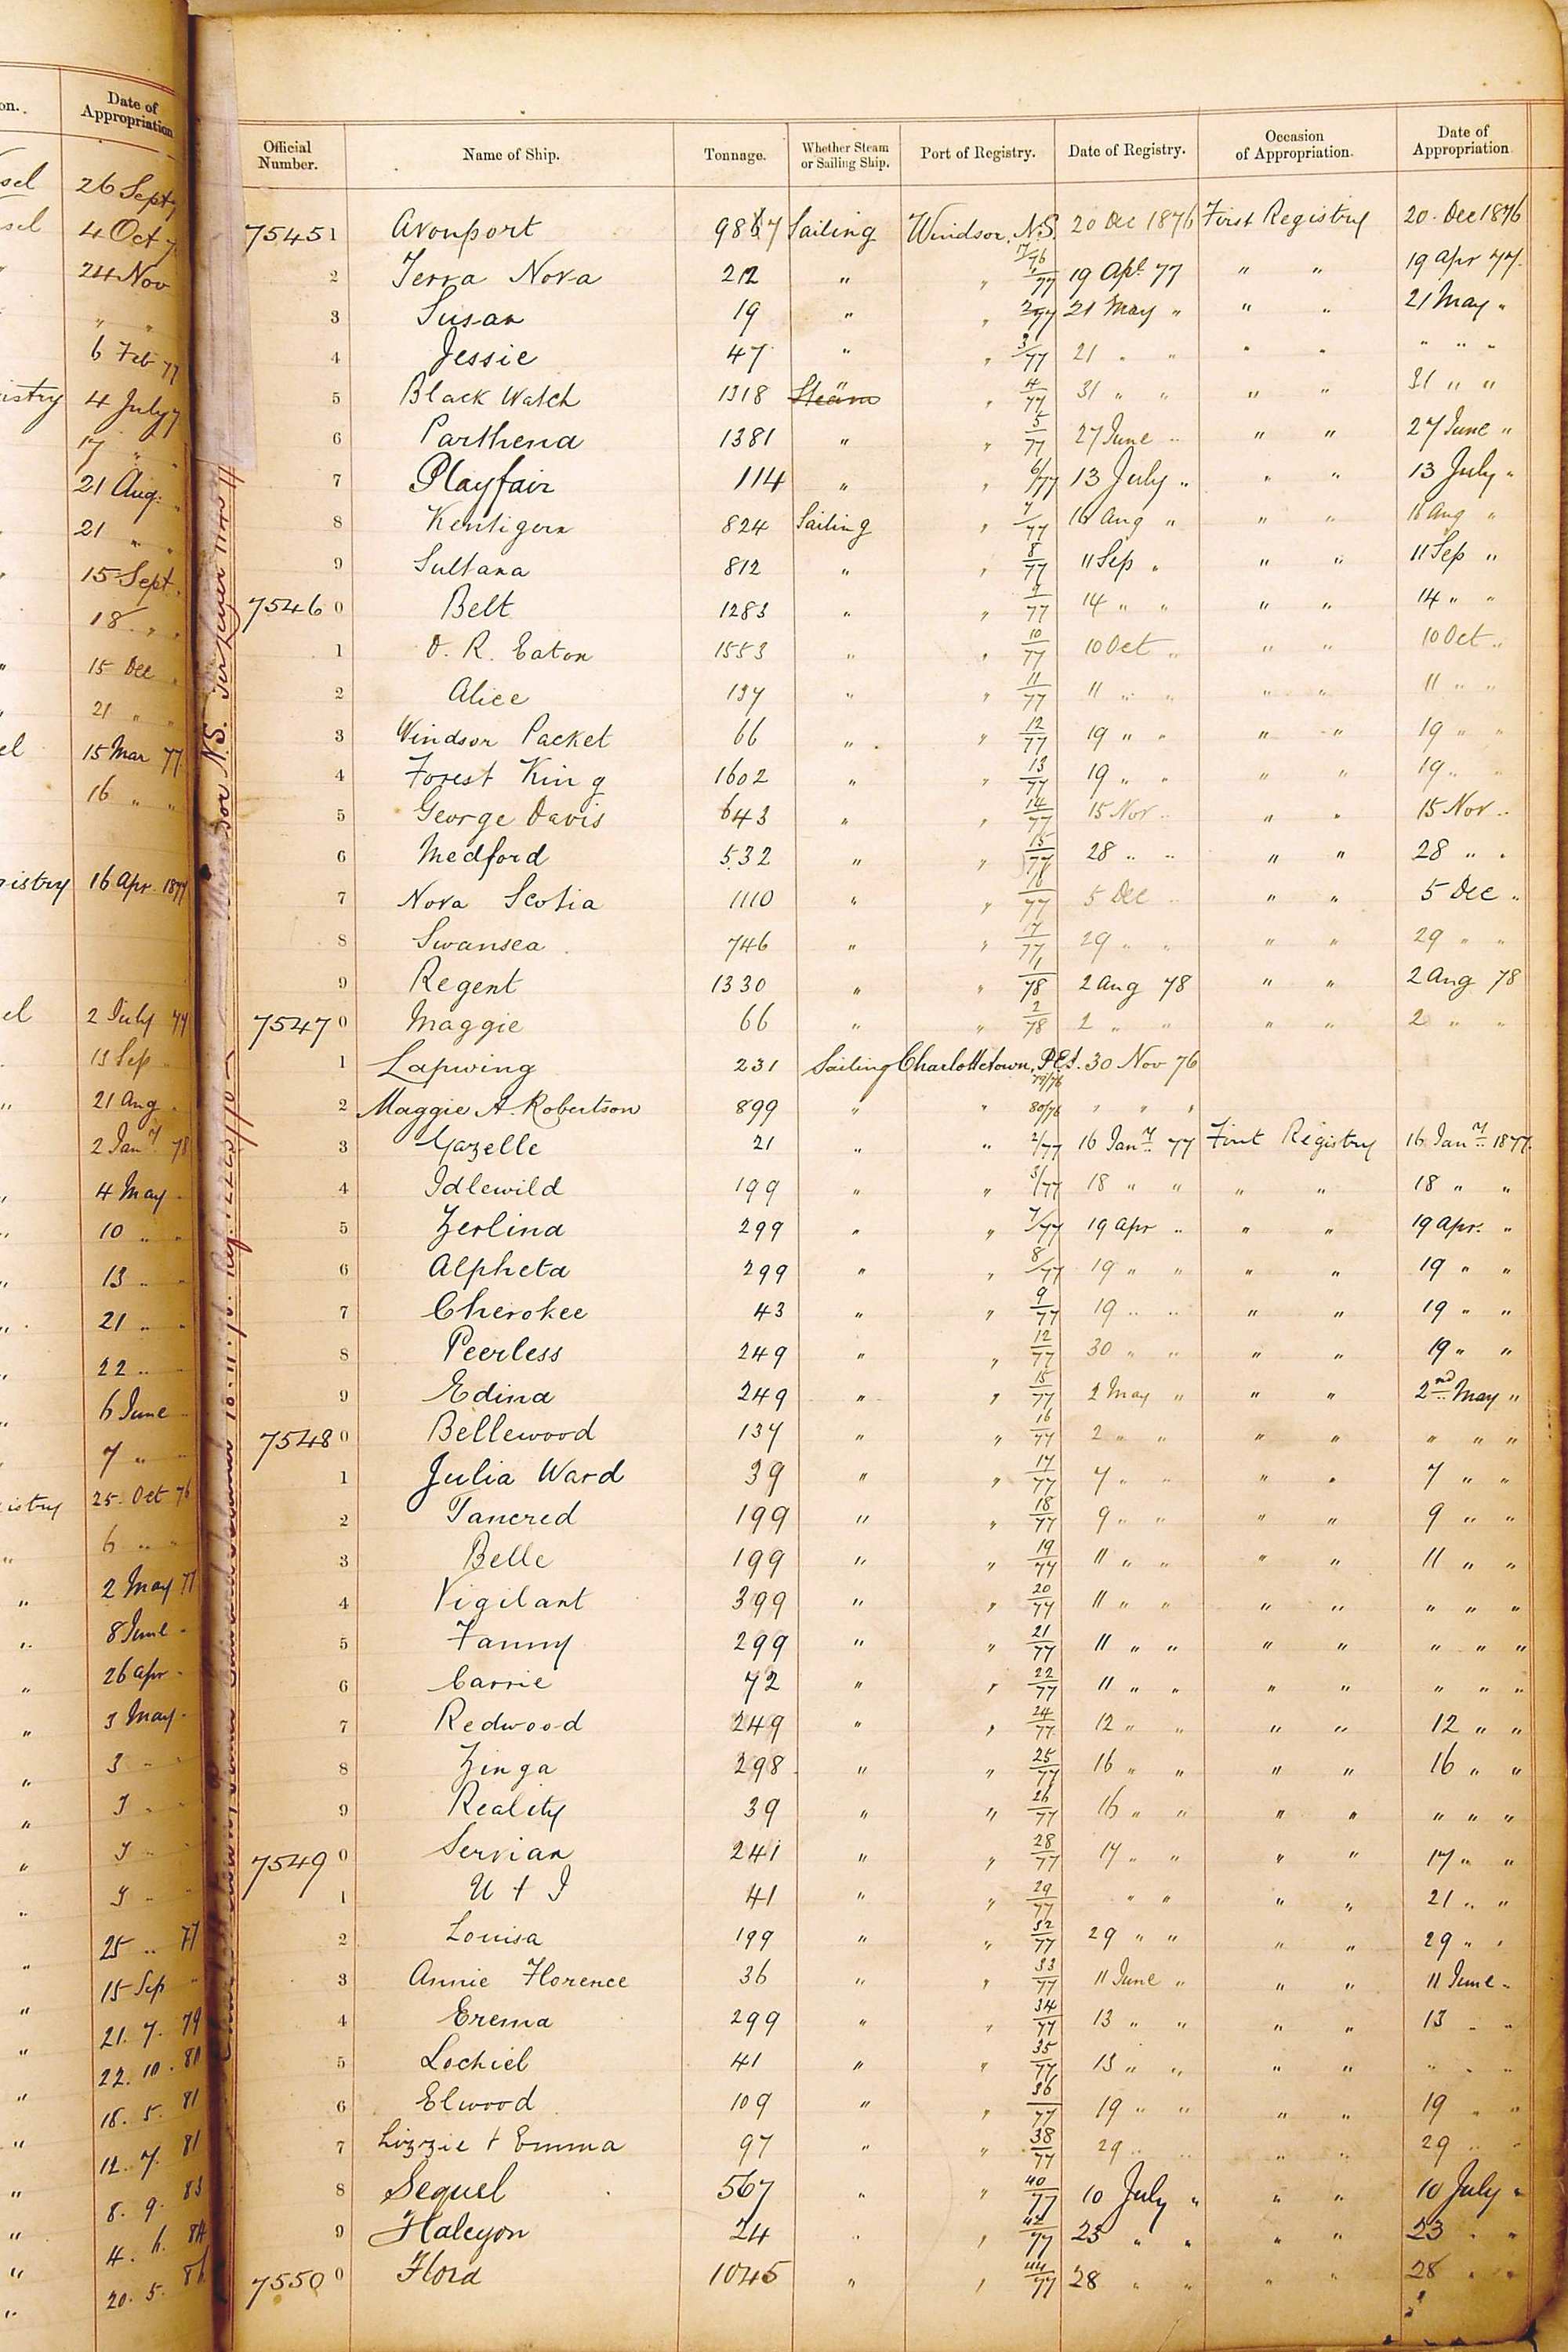 on.
Date of Appropriation
sel 26 Sept
sel 4 Oct
" 24 Nov
" "
6 Feb 77
istry 4 July
17 " "
21 Aug.
21 " "
15 Sept.
18 " "
15 Dec
21 " "
el 15 Mar 77
16 " "
gistry 16 Apr. 1877
el 2 July 77
13 Sep
" 21 Aug
2 Jany 78
4 May
10 " "
13 " "
21 " "
22 " "
6 June
7 " "
istry 25. Oct 76
6 " "
" 2 May 77
8 June
" 26 Apr
" 3 May
" 3 "
" 3 "
" 3 "
" 3 "
" 25 " 77
" 15 Sep
" 21. 7. 79
" 22. 10. 80
" 16. 5. 81
" 12. 7. 81
" 8. 9. 83
" 4. 6. 84
" 20. 5. 86
Windsor N.S.
Official Number. Name of Ship. Tonnage. Whether Steam or Sailing Ship. Port of Registry. Date of Registry. Occasion of Appropriation. Date of Appropriation
75451 Avonport 987 Sailing Windsor, N.S. 7/76 20 Dec 1876 First Registry 20. Dec 1876
2 Terra Nova 212 " " 1/77 19 Apl 77 " " 19 Apr 77.
3 Susan 19 " " 2/77 21 May " " " 21 May "
4 Jessie 47 " " 3/77 21 " " " " " " "
5 Black Watch 1318 Steam " " 4/77 31 " " " " 31 " "
6 Parthena 1381 " " 5/77 27 June " " " 27 June "
7 Playfair 114 " " 6/77 13 July " " " 13 July "
8 Kentigern 824 Sailing " 7/77 16 Aug " " " 16 Aug "
9 Sultana 812 " " 8/77 11 Sep " " " 11 Sep "
75460 Belt 1283 " " 9/77 14 " " " " 14 " "
1 D. R. Eaton 1553 " " 10/77 10 Oct " " " 10 Oct "
2 Alice 137 " " 11/77 11 " " " " 11 " "
3 Windsor Packet 66 " " 12/77 19 " " " " 19 " "
4 Forest King 1602 " " 13/77 19 " " " " 19 " "
5 George Davis 643 " " 14/77 15 Nov " " " 15 Nov "
6 Medford 532 " " 15/77 28 " " " " 28 " "
7 Nova Scotia 1110 " " 16/77 5 Dec " " " 5 Dec "
8 Swansea 746 " " 17/77 29 " " " " 29 " "
9 Regent 1330 " " 1/78 2 Aug 78 " " 2 Aug 78
75470 Maggie 66 " " 2/78 2 " " " " 2 " "
1 Lapwing 231 Sailing Charlottetown, P.E.I. 79/76 30 Nov 76
2 Maggie A. Robertson 899 " " 80/76 " " "
3 Gazelle 21 " " 2/77 16 Jany 77 First Registry 16 Jany 1877.
4 Idlewild 199 " " 3/77 18 " " " " 18 " "
5 Zerlina 299 " " 7/77 19 Apr " " " 19 Apr. "
6 Alpheta 299 " " 8/77 19 " " " " 19 " "
7 Cherokee 43 " " 9/77 19 " " " " 19 " "
8 Peerless 249 " " 12/77 30 " " " " 19 " "
9 Edina 249 " " 15/77 2 May " " " 2nd May "
75480 Bellewood 137 " " 16/77 2 " " " " " " "
1 Julia Ward 39 " " 17/77 7 " " " " 7 " "
2 Tancred 199 " " 18/77 9 " " " " 9 " "
3 Belle 199 " " 19/77 11 " " " " 11 " "
4 Vigilant 399 " " 20/77 11 " " " " " " "
5 Fanny 299 " " 21/77 11 " " " " " " "
6 Carrie 72 " " 22/77 11 " " " " " " "
7 Redwood 249 " " 24/77 12 " " " " 12 " "
8 Zinga 298 " " 25/77 16 " " " " 16 " "
9 Reality 39 " " 26/77 16 " " " " " " "
75490 Servian 241 " " 28/77 17 " " " " 17 " "
1 U + I 41 " " 29/77 " " " " 21 " "
2 Louisa 199 " " 32/77 29 " " " " 29 " "
3 Annie Florence 36 " " 33/77 11 June " " " 11 June "
4 Erema 299 " " 34/77 13 " " " " 13 " "
5 Lochiel 41 " " 35/77 13 " " " " " " "
6 Elwood 109 " " 36/77 19 " " " " 19 " "
7 Lizzie + Emma 97 " " 38/77 29 " " " " 29 " "
8 Sequel 567 " " 40/77 10 July " " " 10 July "
9 Halcyon 24 " " 42/77 23 " " " " 23 " "
75500 Flora 1045 " " 44/77 28 " " " " 28 " "